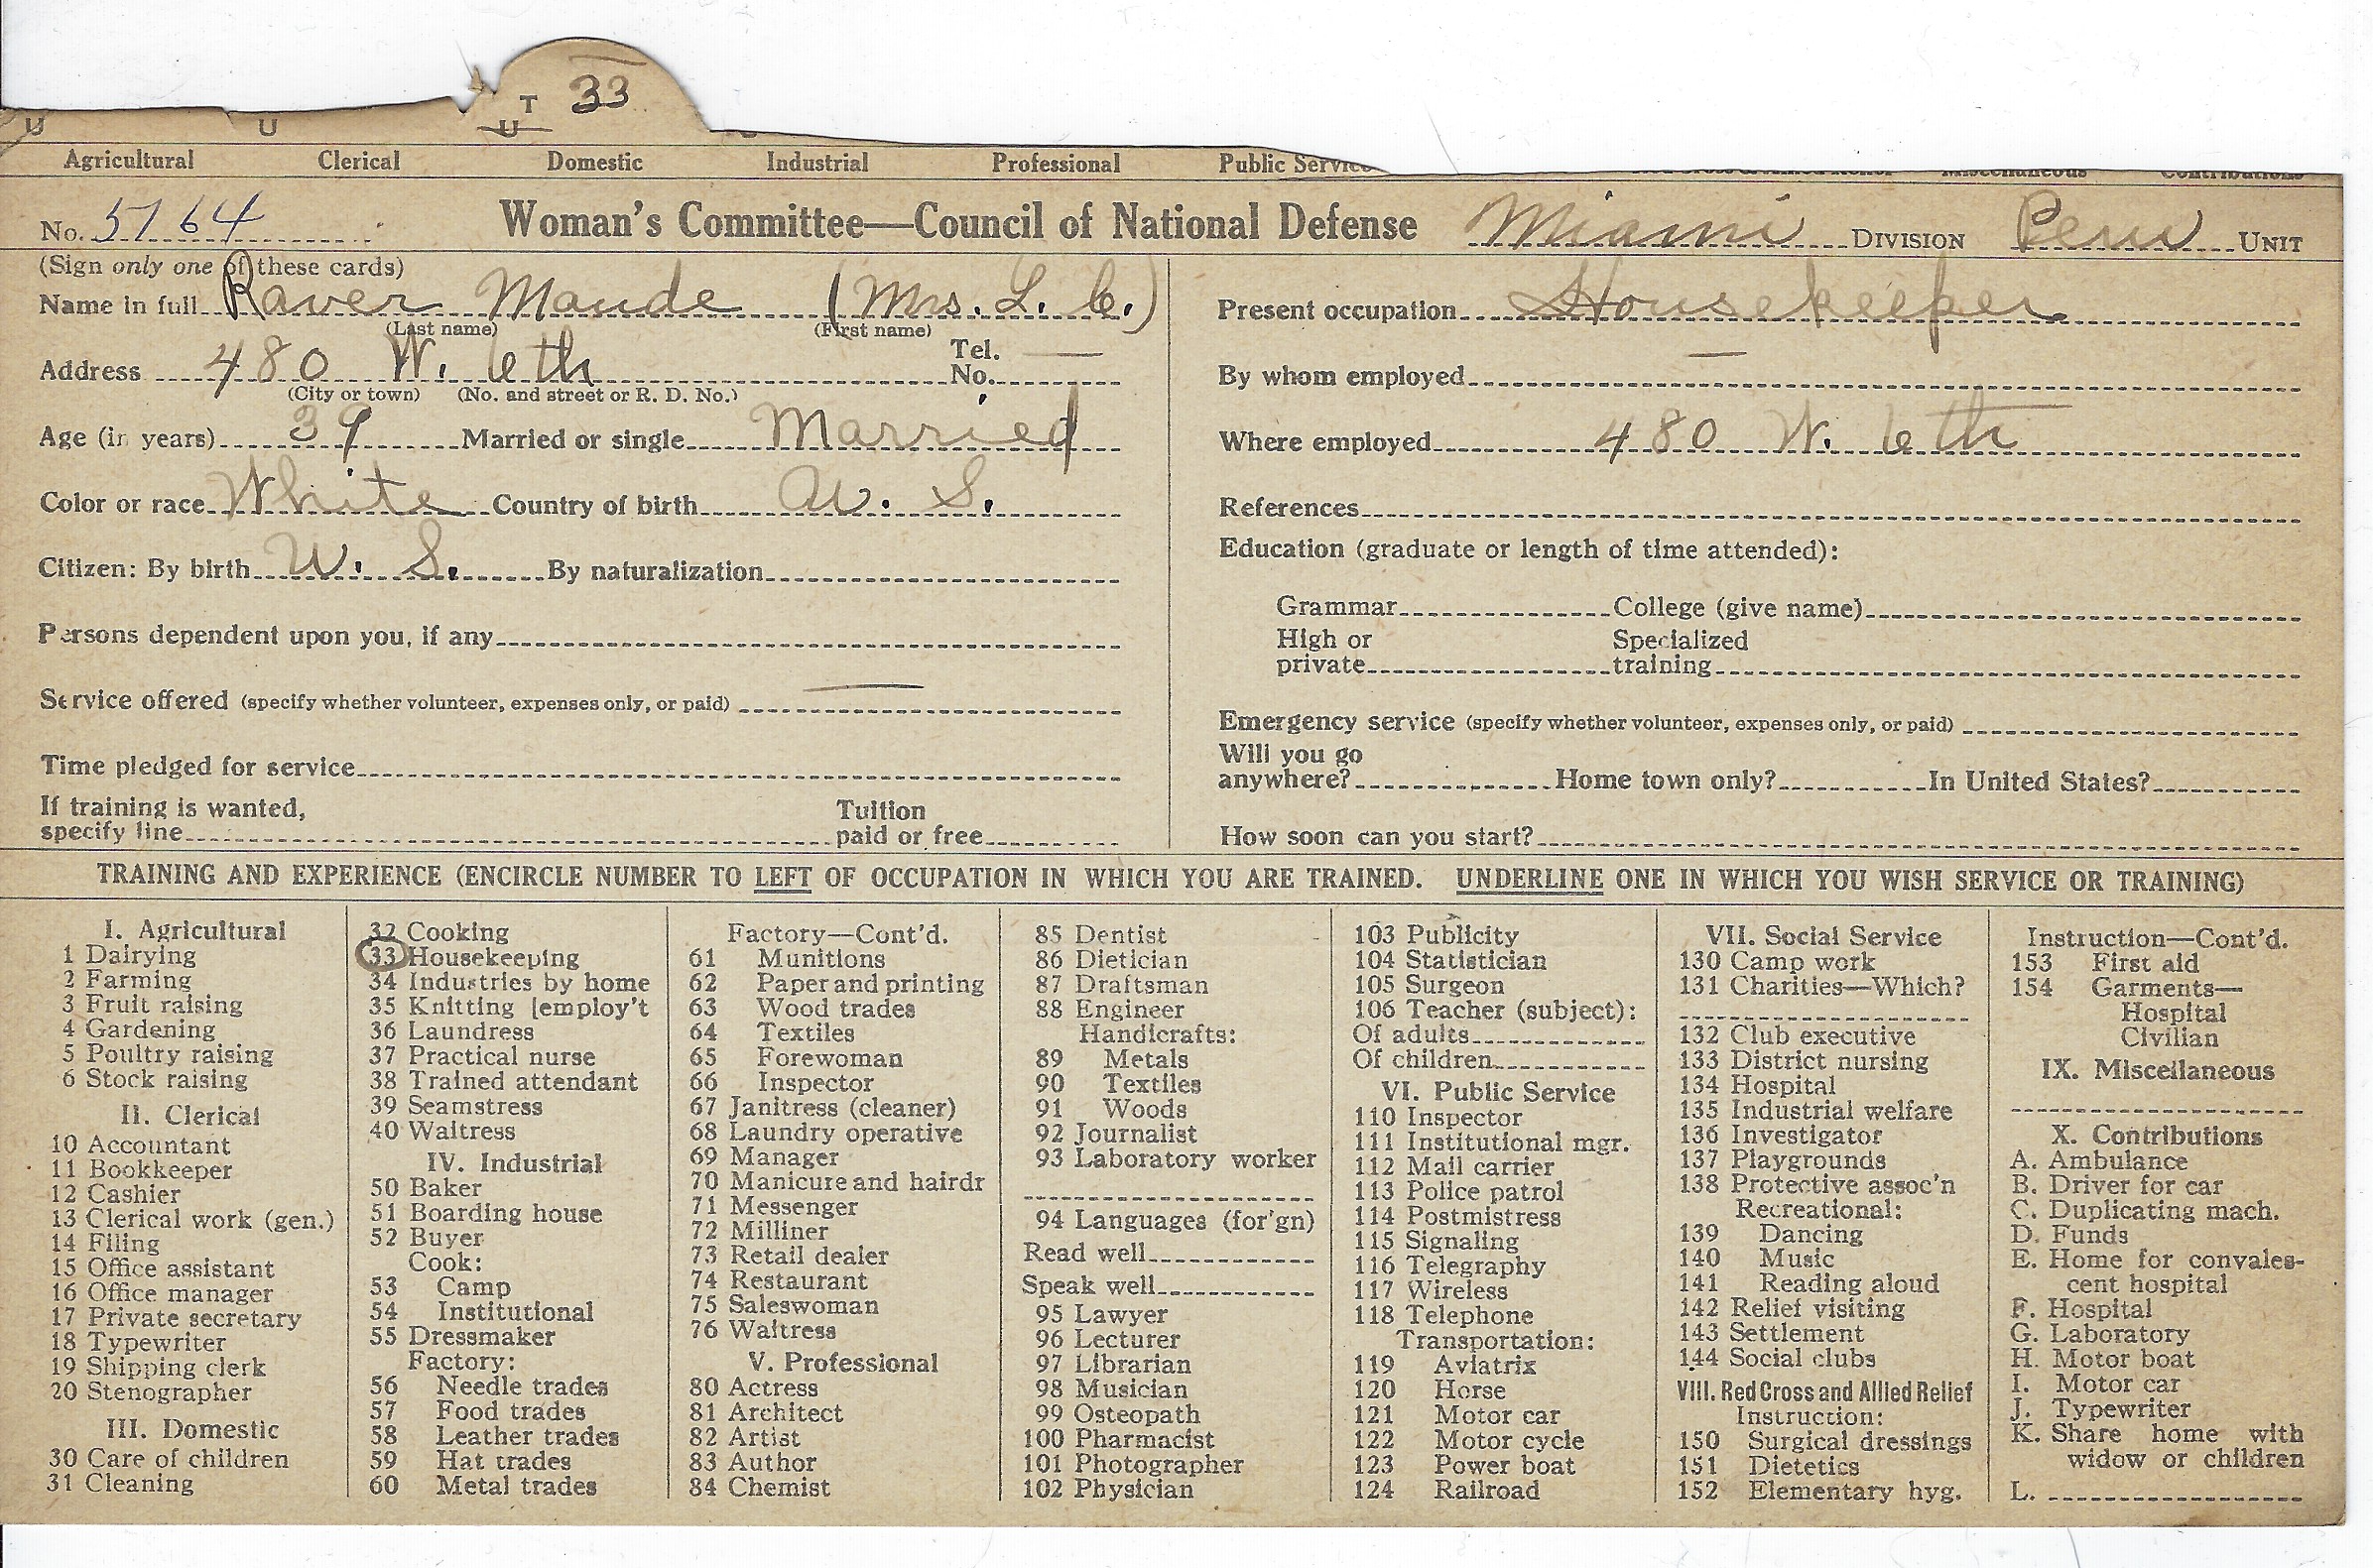 T 33
U U U
Agricultural Clerical Domestic Industrial Professional Public Service Miscellaneous Contributions
No. 5164 Woman's Committee—Council of National Defense Miami DIVISION Peru UNIT
(Sign only one of these cards)
Name in full Raver Maude (Mrs. L. C.)
(Last name) (First name)
Address 480 W. 6th Tel. No. —
(City or town) (No. and street or R. D. No.)
Age (in years) 39 Married or single Married
Color or race White Country of birth U. S.
Citizen: By birth U. S. By naturalization
Persons dependent upon you, if any
Service offered (specify whether volunteer, expenses only, or paid) —
Time pledged for service
If training is wanted,
specify line Tuition paid or free
Present occupation Housekeeper
By whom employed —
Where employed 480 W. 6th
References
Education (graduate or length of time attended):
Grammar College (give name)
High or private Specialized training
Emergency service (specify whether volunteer, expenses only, or paid)
Will you go
anywhere? Home town only? In United States?
How soon can you start?
TRAINING AND EXPERIENCE (ENCIRCLE NUMBER TO LEFT OF OCCUPATION IN WHICH YOU ARE TRAINED. UNDERLINE ONE IN WHICH YOU WISH SERVICE OR TRAINING)
I. Agricultural
1 Dairying
2 Farming
3 Fruit raising
4 Gardening
5 Poultry raising
6 Stock raising
II. Clerical
10 Accountant
11 Bookkeeper
12 Cashier
13 Clerical work (gen.)
14 Filing
15 Office assistant
16 Office manager
17 Private secretary
18 Typewriter
19 Shipping clerk
20 Stenographer
III. Domestic
30 Care of children
31 Cleaning
32 Cooking
33 Housekeeping
34 Industries by home
35 Knitting [employ't
36 Laundress
37 Practical nurse
38 Trained attendant
39 Seamstress
40 Waitress
IV. Industrial
50 Baker
51 Boarding house
52 Buyer
Cook:
53 Camp
54 Institutional
55 Dressmaker
Factory:
56 Needle trades
57 Food trades
58 Leather trades
59 Hat trades
60 Metal trades
Factory—Cont'd.
61 Munitions
62 Paper and printing
63 Wood trades
64 Textiles
65 Forewoman
66 Inspector
67 Janitress (cleaner)
68 Laundry operative
69 Manager
70 Manicure and hairdr
71 Messenger
72 Milliner
73 Retail dealer
74 Restaurant
75 Saleswoman
76 Waitress
V. Professional
80 Actress
81 Architect
82 Artist
83 Author
84 Chemist
85 Dentist
86 Dietician
87 Draftsman
88 Engineer
Handicrafts:
89 Metals
90 Textiles
91 Woods
92 Journalist
93 Laboratory worker
94 Languages (for'gn)
Read well
Speak well
95 Lawyer
96 Lecturer
97 Librarian
98 Musician
99 Osteopath
100 Pharmacist
101 Photographer
102 Physician
103 Publicity
104 Statistician
105 Surgeon
106 Teacher (subject):
Of adults
Of children
VI. Public Service
110 Inspector
111 Institutional mgr.
112 Mail carrier
113 Police patrol
114 Postmistress
115 Signaling
116 Telegraphy
117 Wireless
118 Telephone
Transportation:
119 Aviatrix
120 Horse
121 Motor car
122 Motor cycle
123 Power boat
124 Railroad
VII. Social Service
130 Camp work
131 Charities—Which?
132 Club executive
133 District nursing
134 Hospital
135 Industrial welfare
136 Investigator
137 Playgrounds
138 Protective assoc'n
Recreational:
139 Dancing
140 Music
141 Reading aloud
142 Relief visiting
143 Settlement
144 Social clubs
VIII. Red Cross and Allied Relief
Instruction:
150 Surgical dressings
151 Dietetics
152 Elementary hyg.
Instruction—Cont'd.
153 First aid
154 Garments—
Hospital
Civilian
IX. Miscellaneous
X. Contributions
A. Ambulance
B. Driver for car
C. Duplicating mach.
D. Funds
E. Home for convales-
cent hospital
F. Hospital
G. Laboratory
H. Motor boat
I. Motor car
J. Typewriter
K. Share home with
widow or children
L.